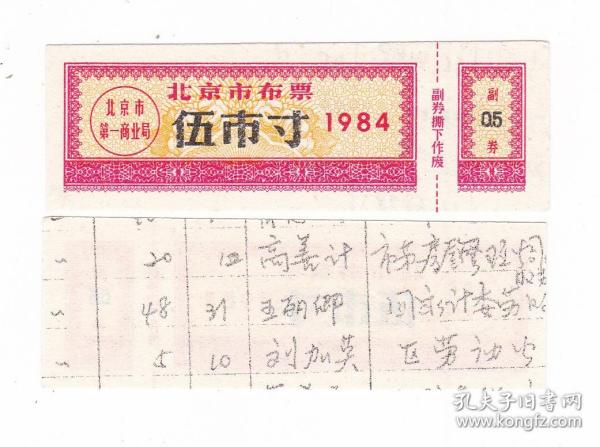 北京市布票
北京市
第一商业局
伍市寸
1984
副券撕下作废
副
0.5
券
〃 20 12 高善计
〃 48 31 王丽卿
〃 5 10 刘加英 区劳动
孔夫子旧书网
www.kongfz.com